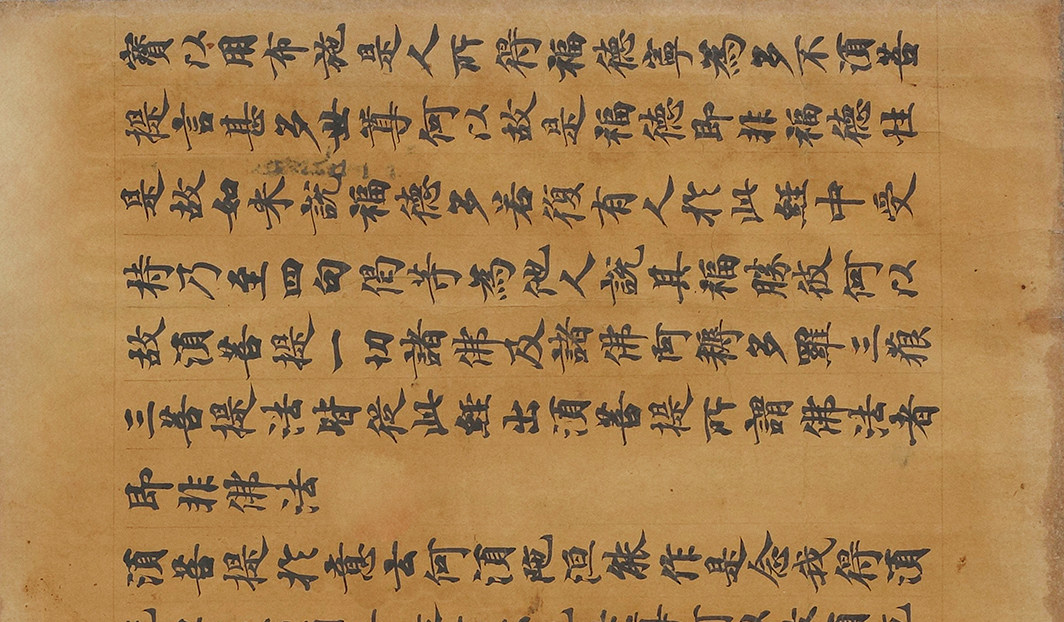 寶以用布施是人所得福德寧為多不須菩
提言甚多世尊何以故是福德即非福德性
是故如来說福德多若復有人於此經中受
持乃至四句偈等為他人說其福勝彼何以
故須菩提一切諸佛及諸佛阿耨多羅三藐
三菩提法皆從此經出須菩提所謂佛法者
即非佛法
須菩提於意云何須陁洹能作是念我得須